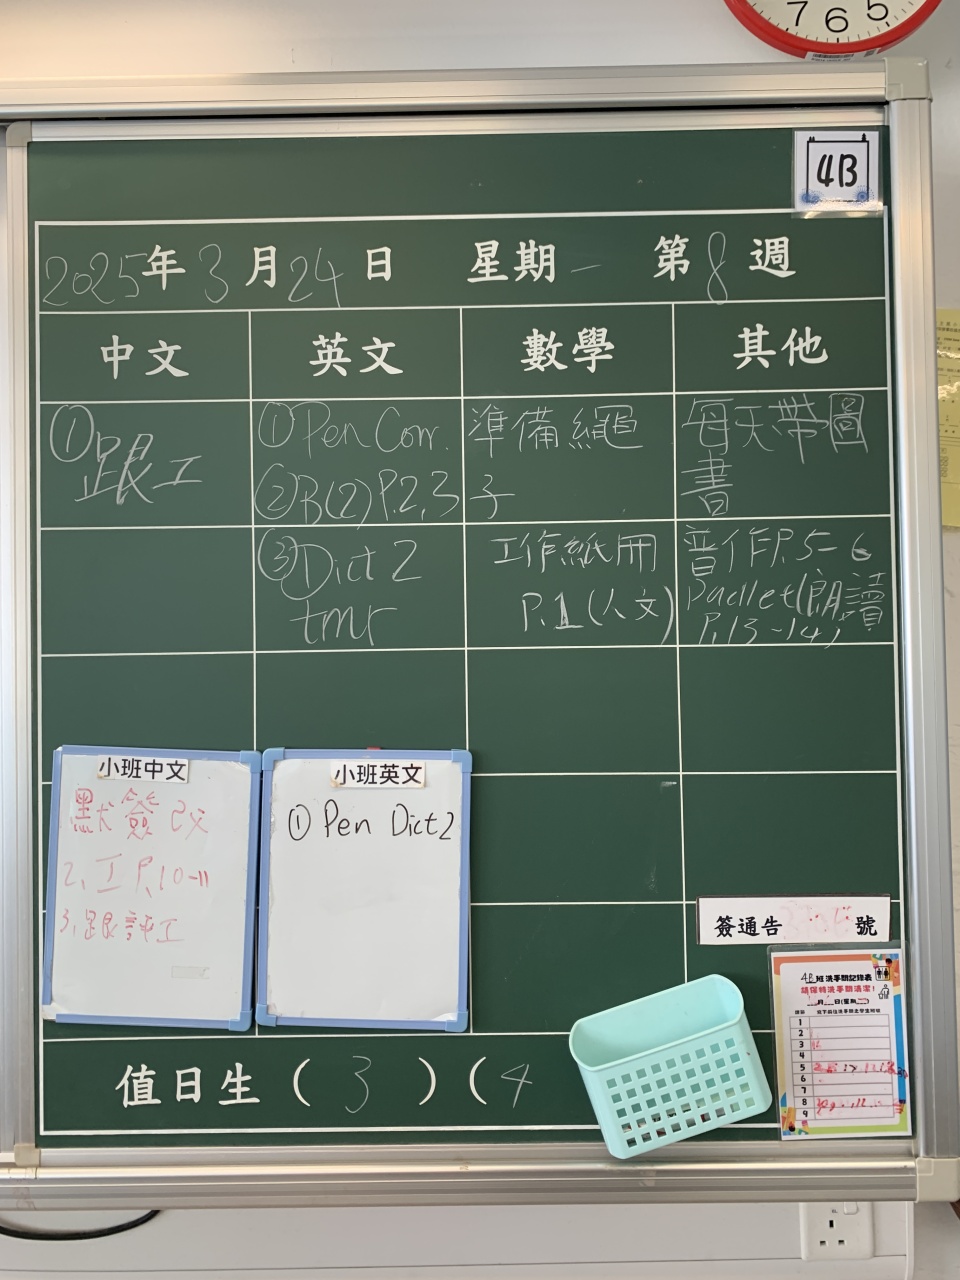 7 6 5
4B
2025年3月24日 星期一 第8週
中文 英文 數學 其他
①跟工
①Pen Corr.
②B(2)P.2,3
③Dict 2
tmr
準備繩
子
工作紙冊
P.1(人文)
每天帶圖
書
普作P.5-6
Padlet(朗讀
P.13-14)
小班中文
默簽改
2、工P.10-11
3、跟評工
小班英文
① Pen Dict 2
簽通告 號
4B班洗手間記錄表
請保持洗手間清潔!
月 日(星期
1
2
3
4
5
6
7
8
9
值日生(3)(4